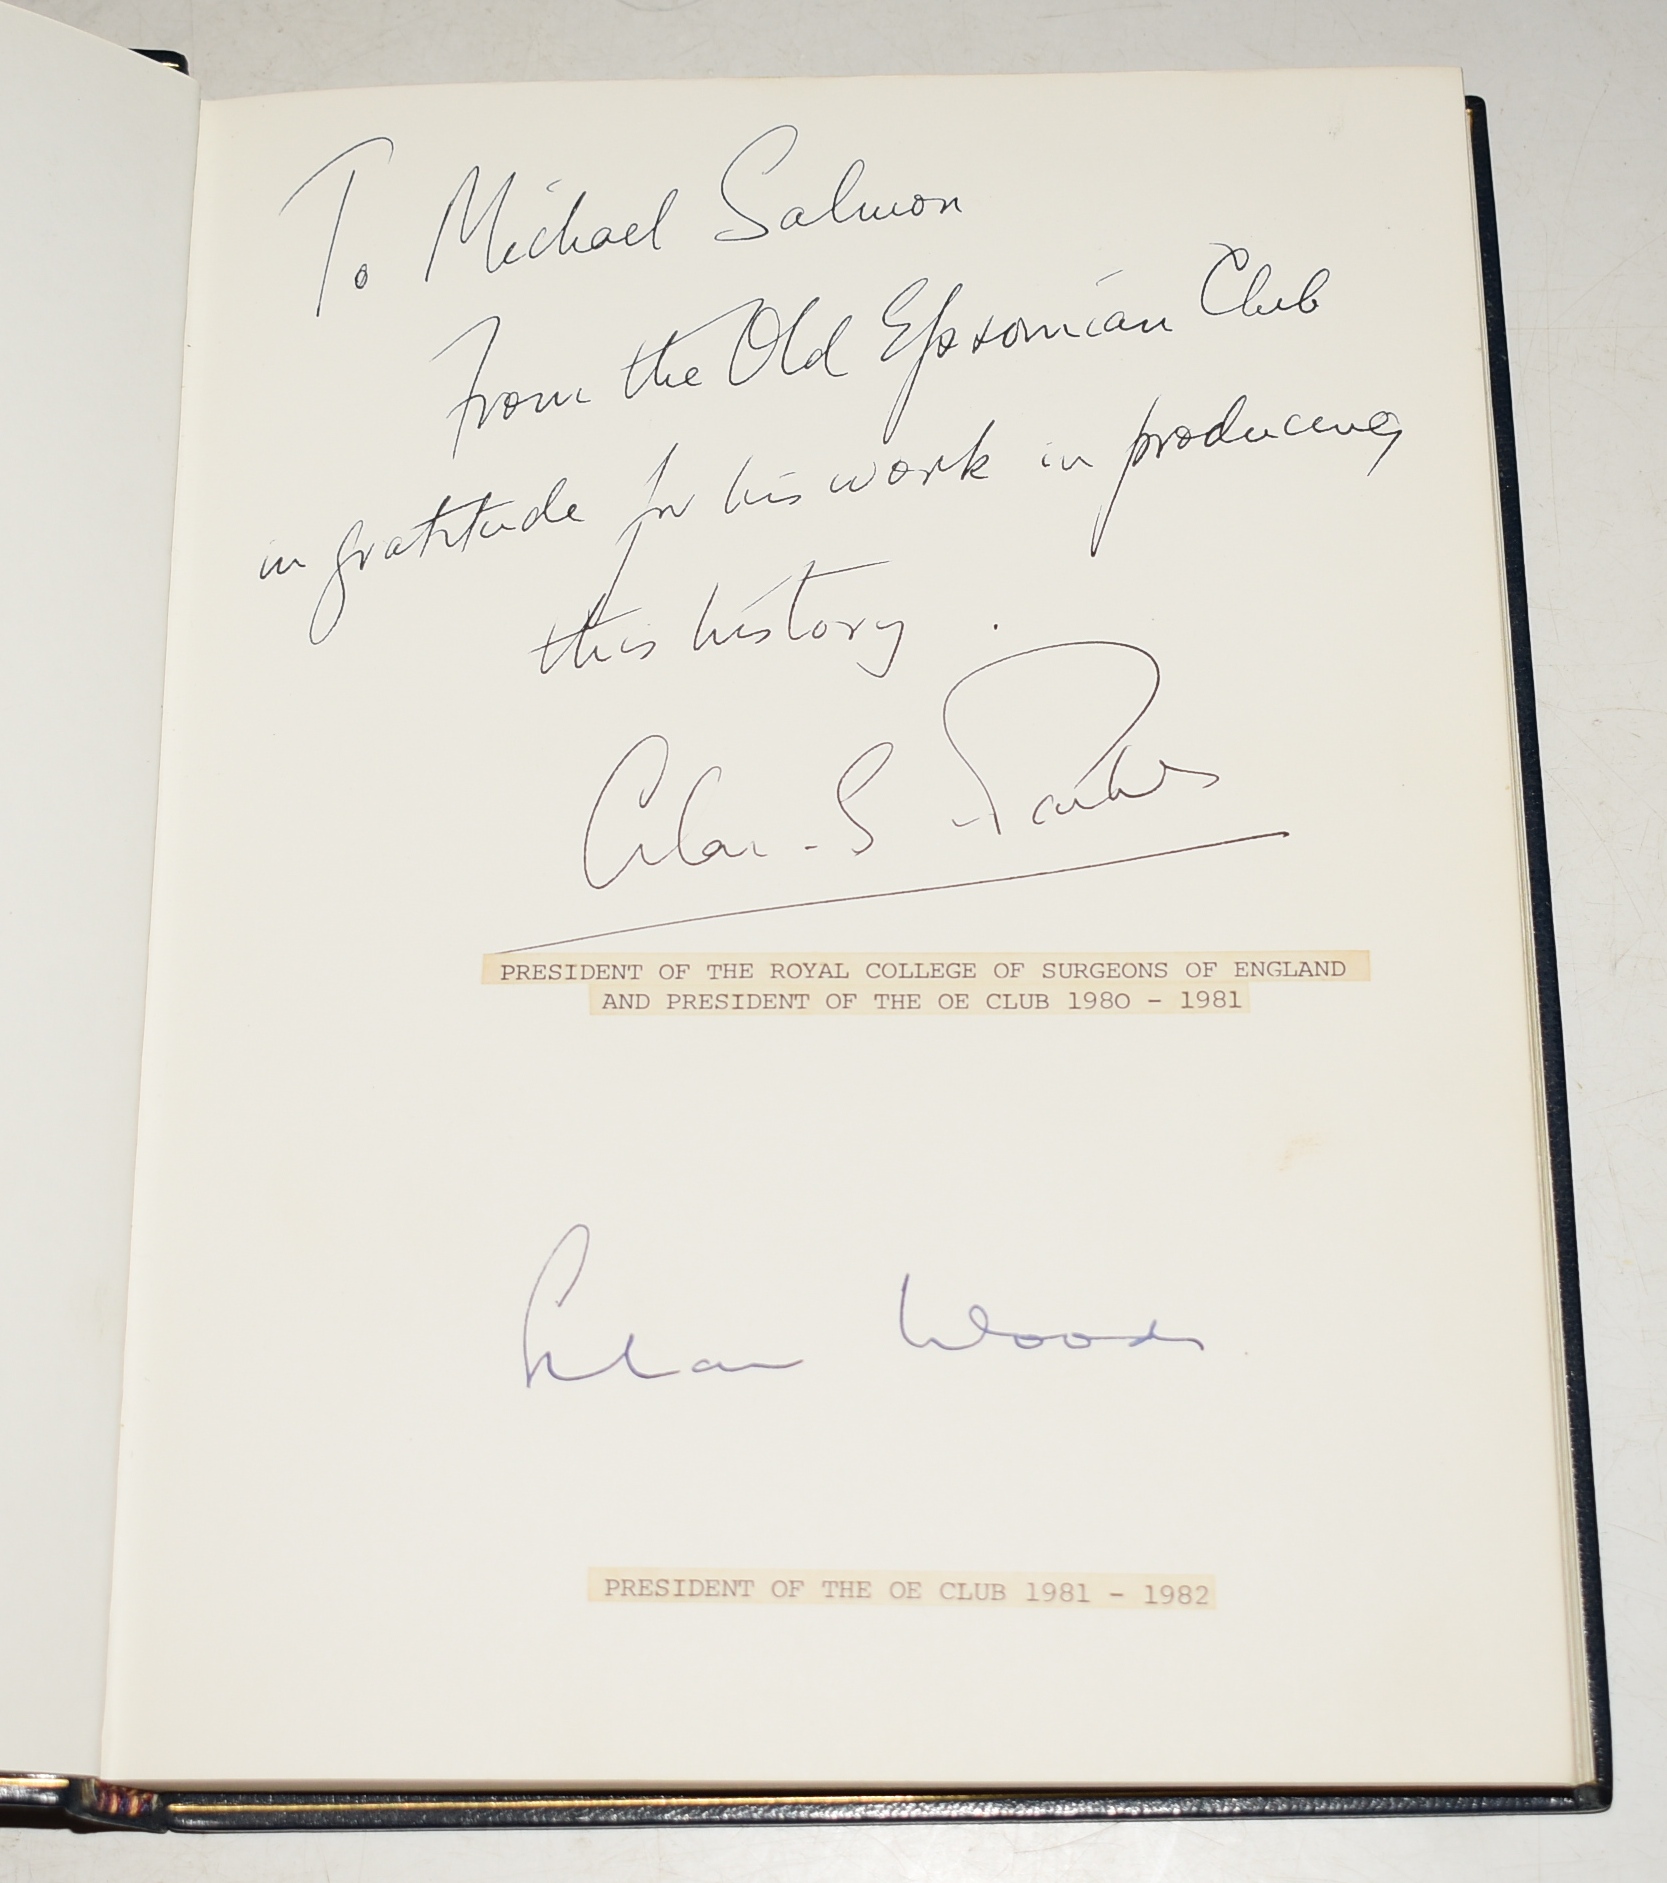 To Michael Salmon
From the Old Epsomian Club
in gratitude for his work in producing
this history.
Alan S Parks
PRESIDENT OF THE ROYAL COLLEGE OF SURGEONS OF ENGLAND
AND PRESIDENT OF THE OE CLUB 1980 - 1981
Woods
PRESIDENT OF THE OE CLUB 1981 - 1982